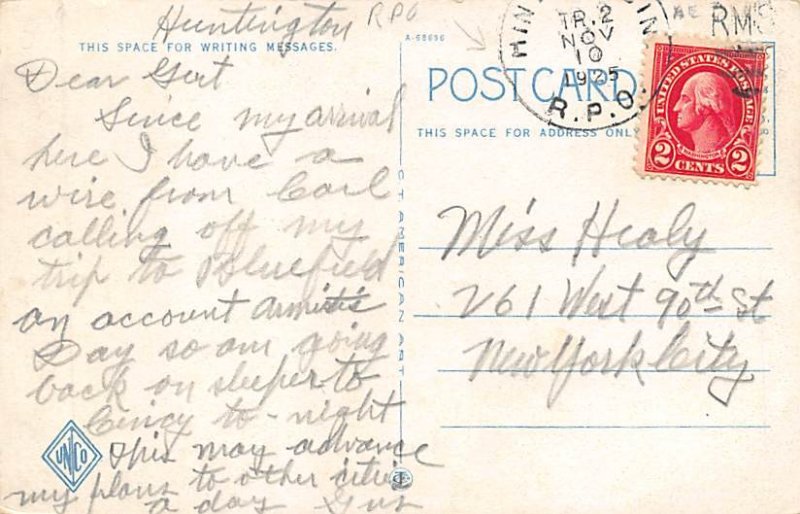 Huntington
RPO
THIS SPACE FOR WRITING MESSAGES.
Dear Gert
Since my arrival
here I have a
wire from Carl
calling off my
trip to Bluefield
an account Armistis
Day so am going
back on sleeper to
Cincy to-night
This may advance
my plans to other cities
a day Gus
UNICO
A-68696
POST CARD
THIS SPACE FOR ADDRESS ONLY
CT AMERICAN ART
HIN CIN
TR. 2
NOV
10
1925
R.P.O.
RMS
UNITED STATES POSTAGE
WASHINGTON
2 CENTS 2
Miss Healy
261 West 90th St
New York City